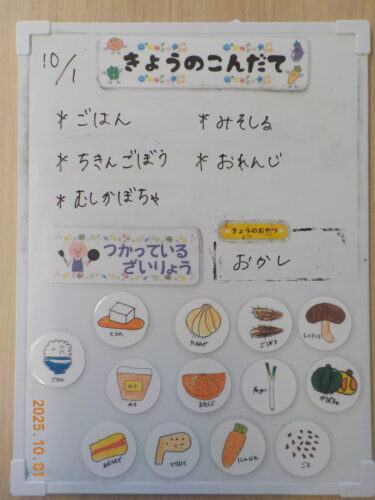 きょうのこんだて
10/1
* ごはん
* みそしる
* ちきんごぼう
* おれんじ
* むしかぼちゃ
きょうのおやつ
つかっている
ざいりょう
おかし
とうふ
たまねぎ
ごぼう
しいたけ
ごはん
みそ
みそ
おれんじ
ねぎ
かぼちゃ
とりにく
にんじん
ごま
2025.10.01